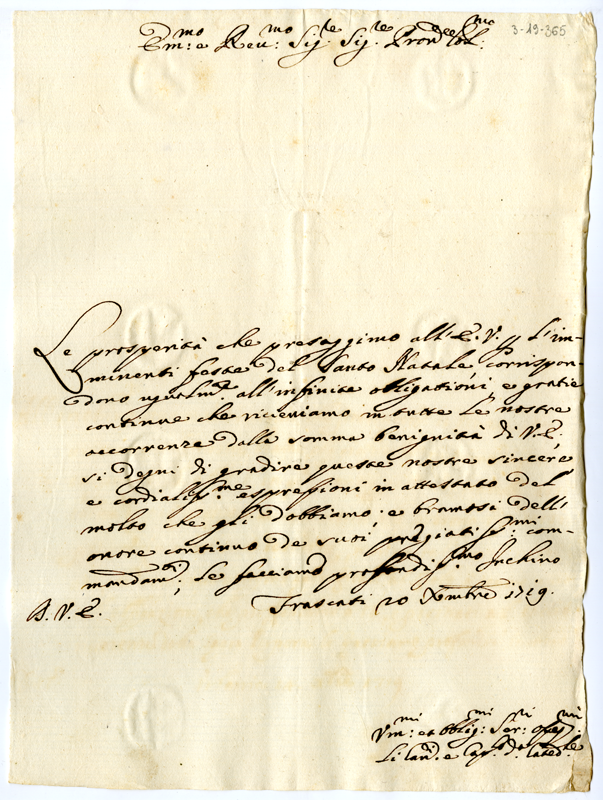 3-19-365
Em:mo e Reu:mo Sig:re Sig:re Pron
Le prosperità che presaggimo all'E.V. p l'im-
minenti feste del Santo Natale corrispon-
dono ugualm:e all'infinite obligationi e gratie
continue che riceviamo in tutte le nostre
accorrenze dalla somma benignità di V.E.
si degni di gradire queste nostre sincere
e cordialiss:me espressioni in attestato del
molto che gli dobbiamo: e bramosi dell'
onore continuo de suoi pregiatiss:mi com-
mandam:ti, Le facciamo profondiss:mo Inchino
B.V.E. Frascati 20 Xmbre 1719.
Vm:mi et obblig:mi Ser:ri
Li Can:ci e Cap:lo